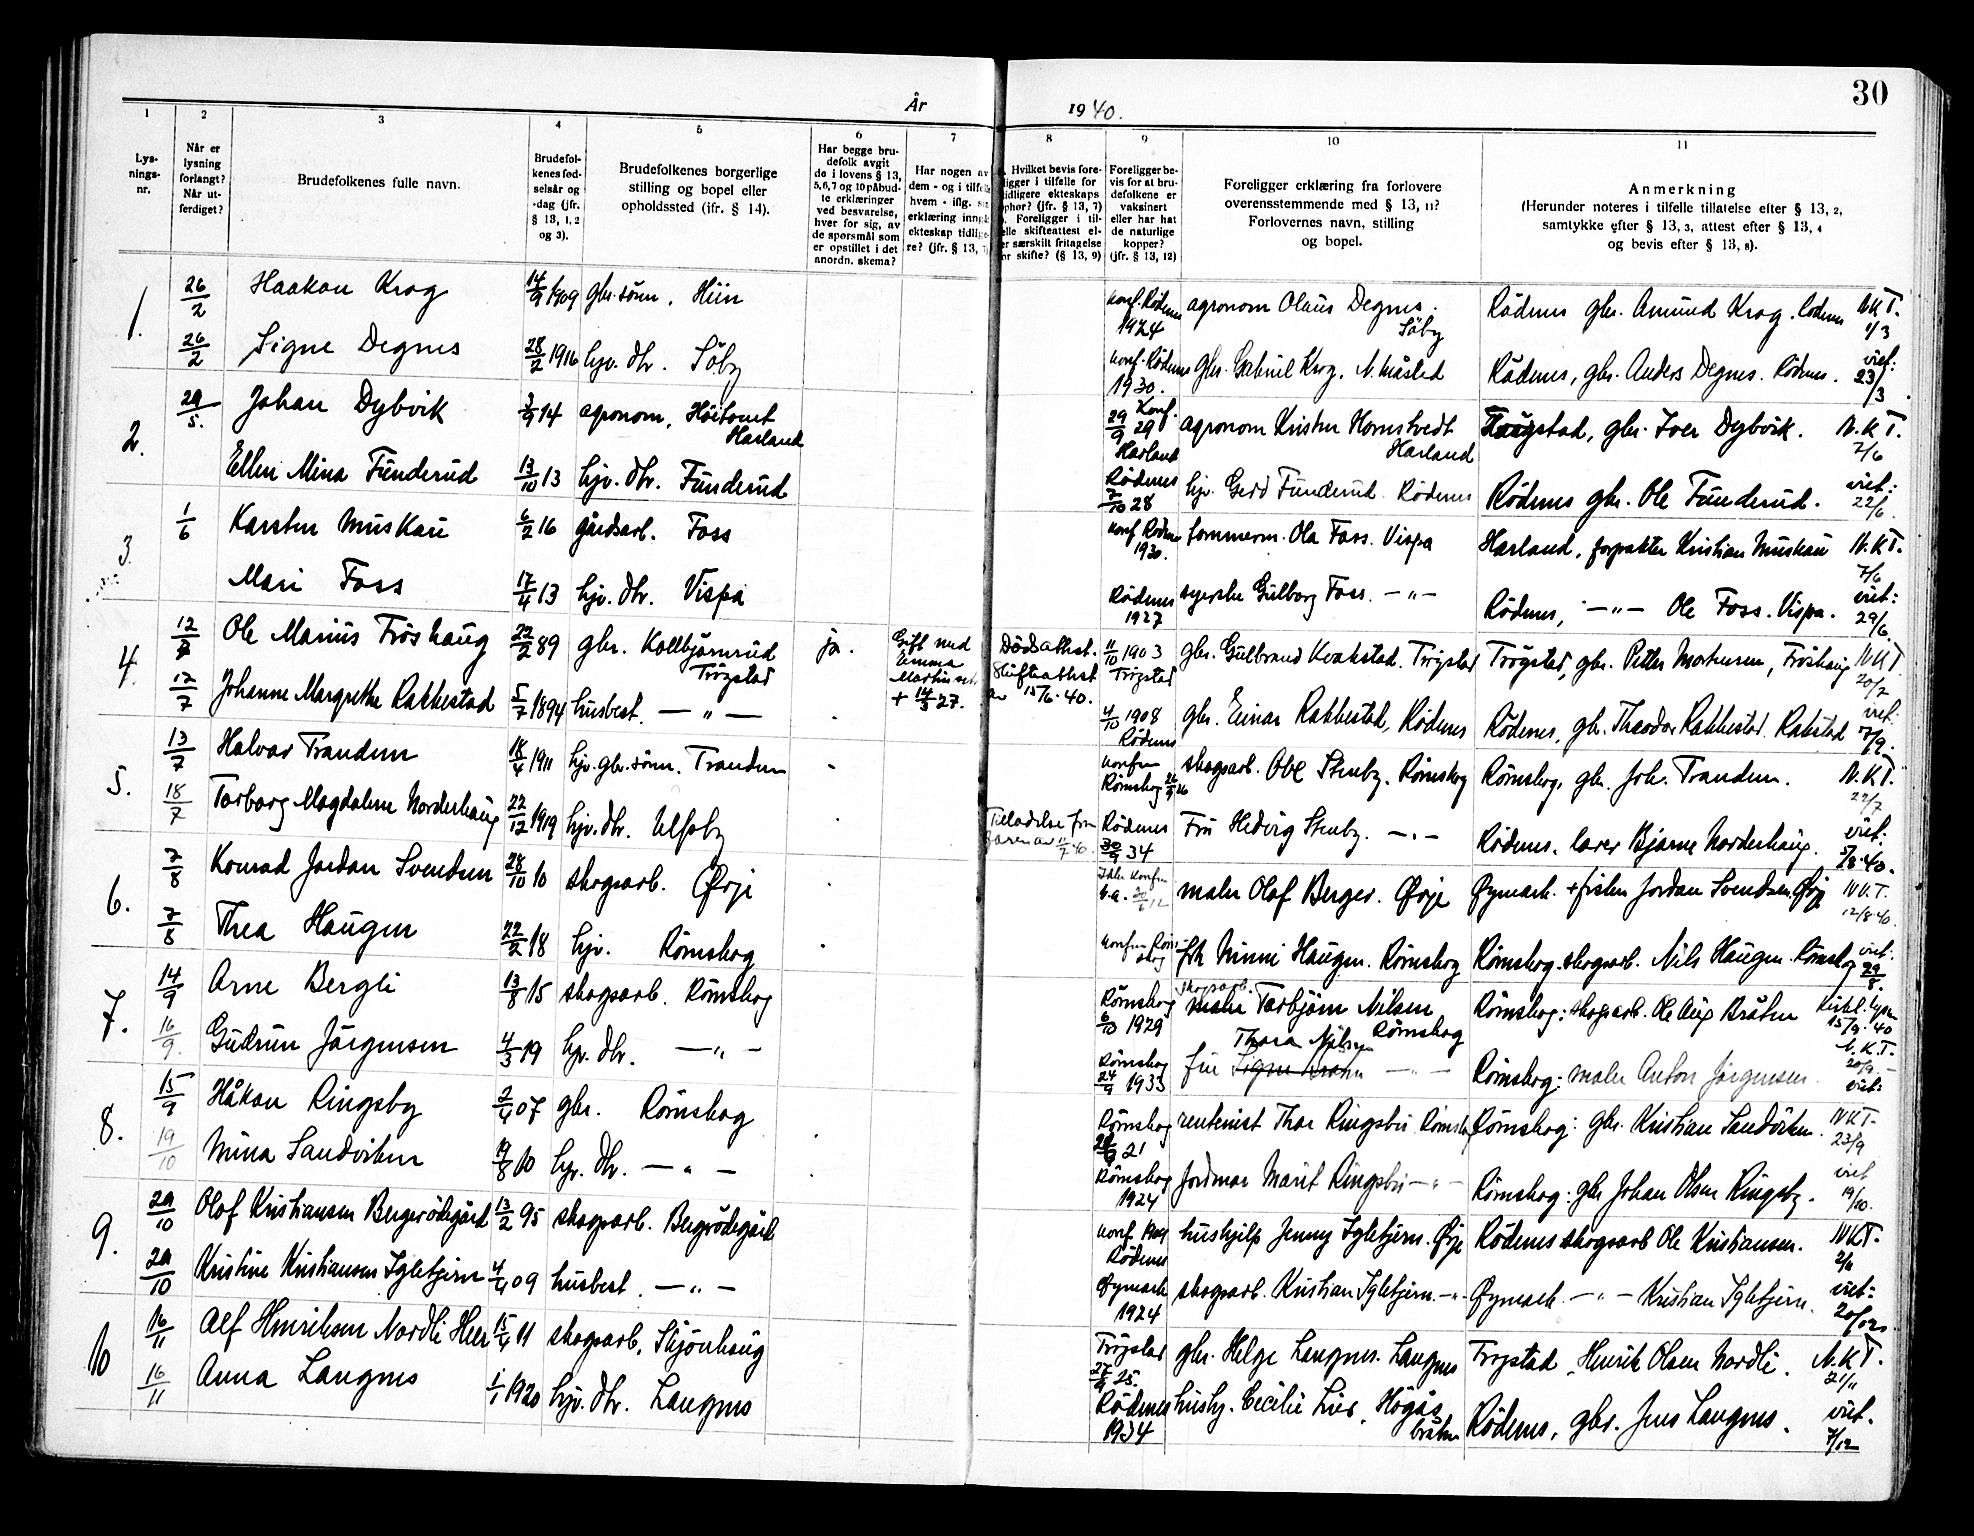 30
År 1940.
1 2 3 4 5 6 7 8 9 10 11
Lys-
nings-
nr.
Når er
lysning
forlangt?
Når ut-
ferdiget?
Brudefolkenes fulle navn.
Brudefol-
kenes fød-
selsår og
-dag (jfr.
§ 13, 1, 2
og 3).
Brudefolkenes borgerlige
stilling og bopel eller
opholdssted (ifr. § 14).
Har begge bru-
defolk avgit
de i lovens § 13,
5,6,7 og 10 påbud-
te erklæringer
ved besvarelse,
hver for sig, av
de spørsmål som
er opstillet i det
anordn. skema?
Har nogen av
dem - og i tilfelle
hvem - iflg. sin
erklæring inngått
ekteskap tidlige-
re? (jfr. § 13, 7)
Hvilket bevis fore-
ligger i tilfelle for
tidligere ekteskaps
ophør? (jfr. § 13, 7)
Foreligger i til-
felle skifteattest el-
ler særskilt fritagelse
for skifte? (§ 13, 9)
Foreligger be-
vis for at bru-
defolkene er
vaksinert
eller har hat
de naturlige
kopper?
(jfr. § 13, 12)
Foreligger erklæring fra forlovere
overensstemmende med § 13, 11?
Forlovernes navn, stilling
og bopel.
Anmerkning
(Herunder noteres i tilfelle tillatelse efter § 13, 2,
samtykke efter § 13, 3, attest efter § 13, 4
og bevis efter § 13, 8).
1. 26/2 Haakon Krog 14/9 1909 gbr. sønn, Hiin konf. Rödenes 1924 agronom Olaus Degnes. Söby Rödenes gbr. Amund Krog. Rödenes N.K.T. 1/3
26/2 Signe Degnes 28/2 1916 hjv. dtr. Söby konf. Rödenes 1930. gbr. Gabriel Krog, N. Måsled Rödenes, gbr. Anders Degnes. Rödenes. viet: 23/3
2. 29/5. Johan Dybvik 3/9 14 agronom, Höitomt Harland 29/9 Konf. 29 Harland agronom Kristen Homstvedt Harland gbr. Iver Dybvik. N.K.T. 7/6
Ellen Mina Funderud 13/10 13 hjv. dtr. Funderud Rödenes 7/10 28 hjv. Gerd Funderud Rödenes Rödenes gbr. Ole Funderud. viet: 22/6.
3. 1/6 Karsten Muskau 6/2 16 gårdsarb. Foss konf Rödenes 1930. tømmerm. Ola Foss. Vispa Harland, forpakter Kristian Muskau N.K.T. 7/6
Mari Foss 17/4 13 hjv. dtr. Vispa Rödenes 1927 syerske Gulborg Foss. -"- Rödenes, -"- Ole Foss. Vispa. viet: 29/6.
4. 12/7 Ole Marius Fröshaug 22/2 89 gbr. Kollbjørnrud Trögstad ja. Gift med Emma Martinsen + 14/3 27. Dödsattest. Skifteattest av 15/6.40. 11/10 1903 Trögstad gbr. Gulbrand Kvakstad. Trögstad Trögstad, gbr. Petter Mortensen, Fröshaug NKT 20/7
12/7 Johanne Margrethe Rakkestad 5/7 1894 husbest. -"- 4/10 1908 Rödenes gbr. Einar Rakkestad, Rödenes Rödenes, gb. Theodor Rakkestad. Rakstad viet: 7/9.
5. 13/7 Halvor Tranden 18/4 1911 hjv. gbr. sønn. Tranden konfm Römskog 26/9 26 skogsarb. Ole Stenby. Römskog Römskog, gbr. Joh. Tranden. N.K.T. 22/7
18/7 Torborg Magdalene Norderhaug 22/12 1919 hjv. dtr. Ulfsby Tilladelse fra faren av 11/7 40. Rödenes 30/9 34 Fru Hedvig Stenby. -"- Rödenes. lærer Bjarne Norderhaug. viet: 5/8.40.
6. 7/8 Konrad Jordan Svendsen 28/10 10 skogsarb. Ørje maler Olaf Berger. Ørje Øymark. + fisker Jordan Svendsen. Ørje N.K.T. 12/8.40.
7/8 Thea Haugen 22/2 18 hjv. Römskog konfm Römskog frk Minni Haugen. Römskog Römskog. skogsarb. Nils Haugen. Römskog viet: 29/8.
7. 14/9 Arne Bergli 13/8 15 skogsarb. Römskog Römskog 6/10 1929 skogsarb. maler Torbjørn Nilsen Römskog Römskog: skogsarb. Ole Aug Bråten 15/9.40
16/9. Gudrun Jörgensen 4/3 19 hjv. dtr. -"- Römskog 24/9 1933 fru Thora Nilsen -"- Römskog: maler Anton Jörgensen. N.K.T. 20/9 viet:
8. 15/9 Håkon Ringsby 2/4 07 gbr. Römskog Römskog 21 rentenist Thor Ringsbu Römskog Römskog: gbr. Kristian Sandviken. NKT. 23/9
19/10 Mina Sandviken 19/8 10 hjv. dtr. -"- Römskog 1924 jordmor Marit Ringsbu -"- Römskog: gbr Johan Olsen Ringsby. viet 19/10.
9. 29/10 Olaf Kristiansen Bergerödegård 13/2 95 skogsarb. Bergrödegård konf 1909 Rödenes hushjelp Jenny Igletjern. Ørje Rödenes skogsarb Ole Kristiansen. NKT. 2/11
29/10 Kristine Kristiansen Igletjern 4/4 09 husbest. -"- Øymark 1924 skogsarb. Kristian Igletjern. -"- Øymark. -"- Kristian Igletjern. viet: 20/12
10 16/11 Alf Henriksen Nordli Heer 15/4 11 skogsarb, Skjönhaug Trögstad 27/9 25. gbr. Helge Langnes. Langnes Trögstad, Henrik Olsen Nordli. N.K.T. 21/11
16/11 Anna Langnes 1/1 1920 hjv. dtr. Langnes Rödenes 1934 hushj. Cecilie Lier, Högås bråten Rödenes, gbr. Jens Langnes. viet. 7/12